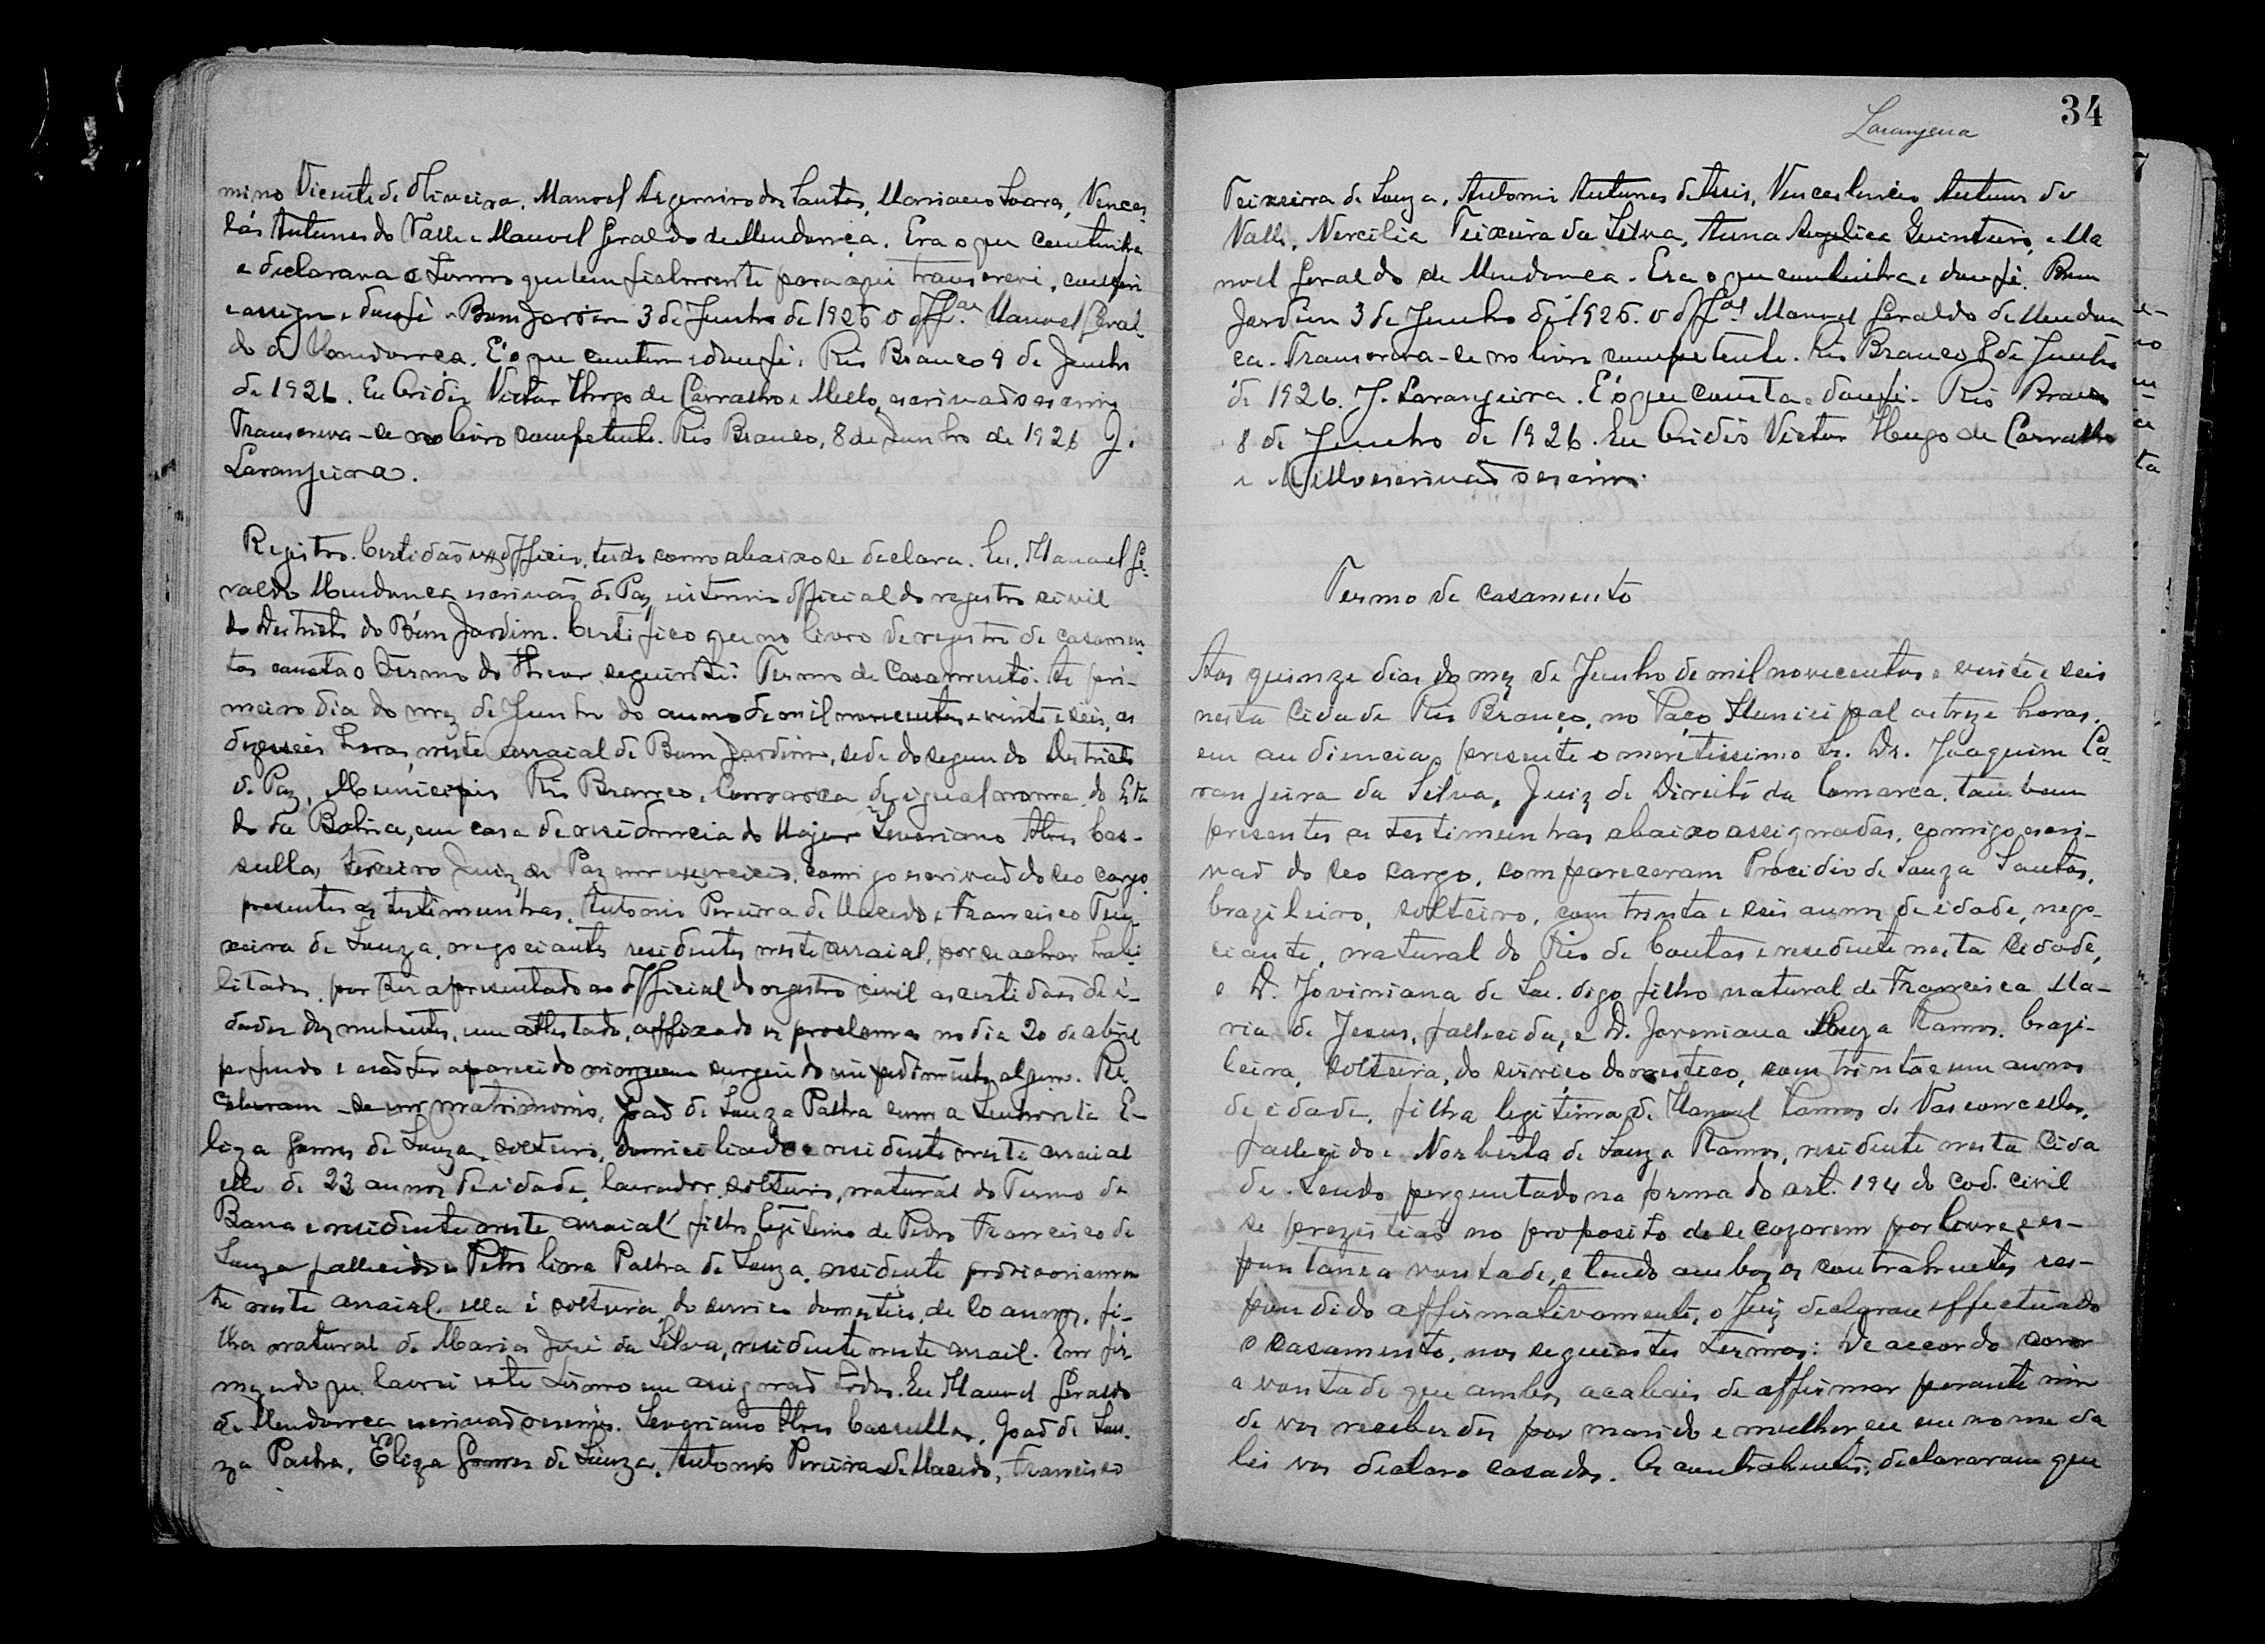 mino Vicente de Oliveira, Manoel Argemiro dos Santos, Marianno Soara, Vences
láo Antunes do Valle e Manoel Geraldo de Mendonça. Era o que continha
e declarava o termo que bem fielmente para aqui transcrevi, conferi
e assigno e dou fé. Bom Jardim 3 de Junho de 1926 o Off.al Manoel Geral-
do de Mendonça. É o que contem e dou fé. Rio Branco 8 de Junho
de 1926. Eu Victor Hugo de Carvalho e Mello, escrivão o escrevi
Transcreva-se no livro competente. Rio Branco, 8 de Junho de 1926 J.
Laranjeira.
Registro. Certidão Officio, tudo como abaixo se declara. Eu, Manoel Ge-
raldo Mendonça escrivão de Paz, interino official do registro civil
do Destricto do Bom Jardim. Certifico que no livro de registro de casamen-
tos consta o termo do theor seguinte: Termo de Casamento. Ao pri-
meiro dia do mez de Junho do anno de mil novecentos e vinte e seis, as
dezeseis horas, neste arraial de Bom Jardim, sede do segundo Destricto
de Paz, Municipio Rio Branco, Comarca de igual nome do Esta
do da Bahia, em casa de residencia do Major Severiano Alves Cas-
sulla, terceiro Juiz de Paz em exercicio, comigo escrivão do seo cargo,
presentes as testimunhas, Antonio Pereira de Macedo e Francisco Tei-
xeira de Souza, negociantes residentes neste arraial, por se achar habi-
litados, por ter apresentado ao Official do registro civil as certidões de i-
dades dos nubentes, um attestado, affixado os proclamas no dia 20 de abril
p. findo e não ter aparecido ninguem surgindo impedimento algum. Re
ceberam-se em matrimonio, João de Souza Palha com a Senhorita E-
liza Gomes de Souza, solteiro, domiciliado e residente neste arraial
elle de 23 annos de idade, lavrador, solteiro, natural do Termo de
e residente neste arraial filho legitimo de Pedro Francisco de
Souza fallecido e Petrolina Palha de Souza, residente provisoriamen
te neste arraial. ella é solteira, do serviço domestico, de 20 annos, fi-
lha natural de Maria José da Silva, residente neste arrail. Em fir
meza do que lavrei este termo em que assignão todos. Eu Manoel Geraldo
de Mendonça escrivão o escrevi. Severiano Alves Cassulla, João de Sou-
za Palha, Eliza Gomes de Souza, Antonio Pereira de Macedo, Francisco
34
Laranjeira
Teixeira de Souza, Antonio Antunes de Assis, Antunes do
Valle, Nercilia Teixeira da Silva, Anna Angelica, e Ma
noel Geraldo de Mendonca. Era o que continha e dou fé. Bom
Jardim 3 de Junho de 1926. o Off.al Manoel Geraldo de Mendon
ca. Transcreva-se no livro competente. Rio Branco 8 de Junho
de 1926. J. Laranjeira. É o que consta e dou fé. Rio Branco
8 de Junho de 1926. Eu Victor Hugo de Carvalho
e Mello escrivão o escrevi.
Termo de casamento
Aos quinze dias do mez de Junho de mil novecentos e vinte e seis
nesta Cidade Rio Branco, no Paço Municipal as treze horas,
em audiencia, presente o meretissimo Sr. Dr. Joaquim La-
ranjeira da Silva, Juiz de Direito da Comarca, tambem
presentes as testimunhas abaixo assignadas, comigo escri-
vaõ do seo cargo, compareceram Procidio de Souza Santos,
brazileiro, solteiro, com trinta e seis annos de idade, nego-
ciante, natural do Rio de Contas e residente nesta Cidade,
e D. Joviniana de Sou. digo filho natural de Francisca Ma-
ria de Jesus, fallecida, e D. Joveniana Souza Ramos, brazi-
leira, solteira, do serviço domestico, com trinta e um annos
de idade, filha legitima de Manoel Ramos de Vasconcellos,
fallecido e Norberta de Souza Ramos, residente nesta Cida
de. Sendo perguntado na forma do art. 194 do cod. civil
se prezistiaõ no proposito de se cazarem por livre e es-
pontanea vontade, e tendo ambos os contrahentes res-
pondido affirmativamente, o Juiz declarou effectuado
o casamento, nos seguintes termos: De accordo com
a vontade que ambos acabais de affirmar perante mim
de vos receberdes por marido e mulher, eu em nome da
lei vos declaro casados. Os contrahentes declararam que